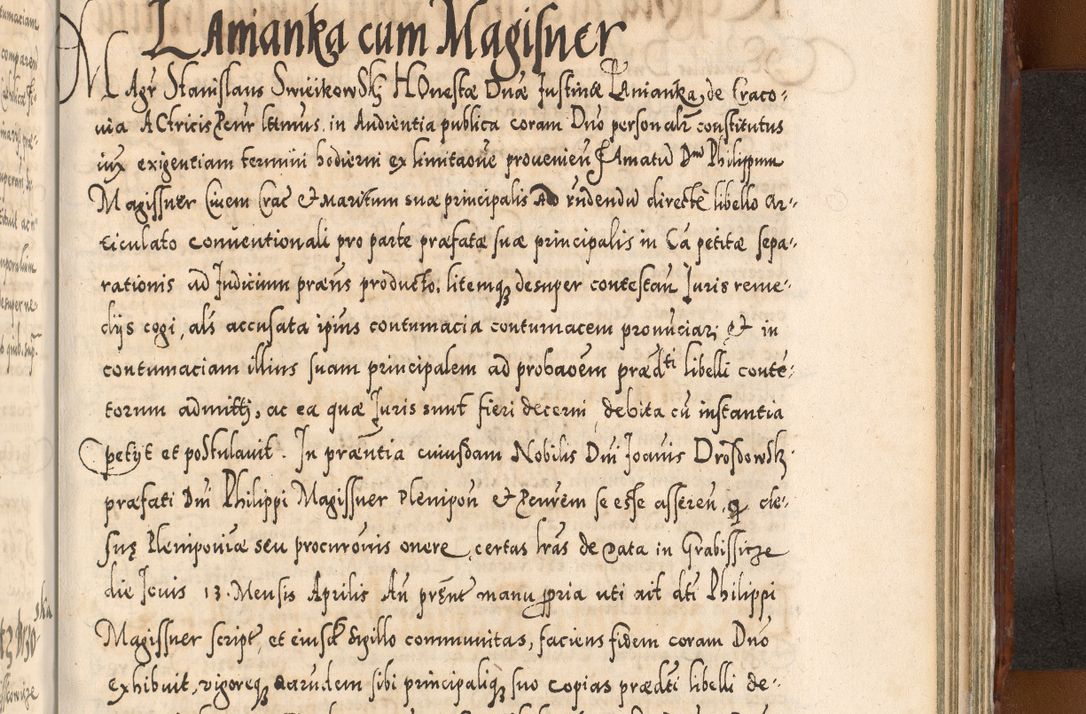 Łanianka cum Magisner
Magr Stanislaus Swieÿkowskj Honestæ Dnæ Justinæ Łanianka, de Craco-
via Actricis Penr ltmus. in Audientia publica coram Dno personalr constitutus
iux exigentiam termini hodierni ex limitaone provenien Famatū Dnū Philippum
Magissner Civem Crac et maritum suæ principalis ad rñdendū directè libello ar-
ticulato conventionali pro parte præfatæ suæ principalis in Cā petitæ sepa-
rationis ad Judicium præns producto, litemq desuper contestan Juris reme-
dijs cogi, als accusata ipius contumacia contumacem pronūciari et in
contumaciam illius suam principalem ad probaoem prædti libelli conté-
torum admitti, ac ea quæ Juris sunt fieri decerni debita cū instantia
petijt et postulavit. In præntia cuiusdam Nobilis Dni Joanis Drosdowskj
præfati Dni Philippi Magissner Plenipon et Penrem se esse asseren, q de-
suę Pleniponiæ seu procuronis onere, certas lras de data in Grabissicze
die Jovis 13. Mensis Aprilis An prênt manu ppria uti ait dti Philippi
Magissner script, et eiusd sigillo communitas, faciens fidem coram Dno
exhibuit, vigoreq earundem sibi principaliq suo copias prædti libelli de-